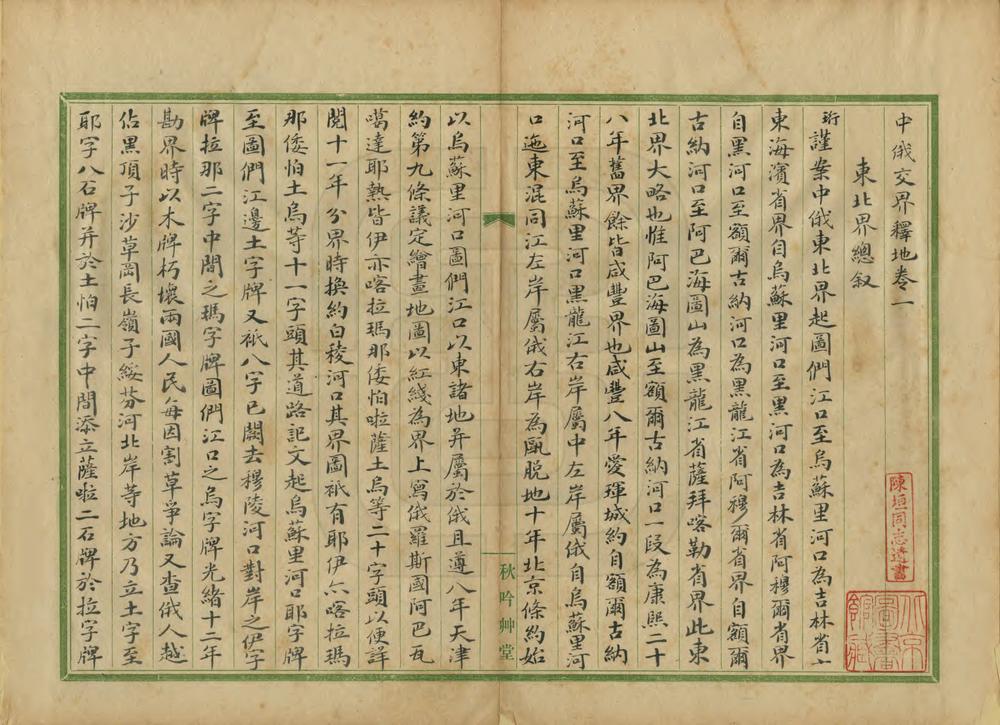 中俄交界釋地卷一
東北界總叙
珩謹案中俄東北界起圖們江口至烏蘇里河口為吉林省
東海濱省界自烏蘇里河口至黑河口為吉林省阿穆爾省界
自黑河口至額爾古納河口為黑龍江省阿穆爾省界自額爾
古納河口至阿巴海圖山為黑龍江省薩拜喀勒省界此東
北界大略也惟阿巴海圖山至額爾古納河口一段為康熙二十
八年舊界餘皆咸豐界也咸豐八年愛琿城約自額爾古納
河口至烏蘇里河口黑龍江右岸屬中左岸屬俄自烏蘇里河
口迤東混同江左岸屬俄右岸為甌脫地十年北京條約始
以烏蘇里河口圖們江口以東諸地并屬於俄且遵八年天津
約第九條議定繪畫地圖以紅綫為界上寫俄羅斯國阿巴瓦
噶達耶熱皆伊亦喀拉瑪那倭怕啦薩土烏等二十字頭以便詳
閱十一年分界時換約白稜河口其界圖祇有耶伊亦喀拉瑪
那倭怕土烏等十一字頭其道路記文起烏蘇里河口耶字牌
至圖們江邊土字牌又祇八字已闕去穆陵河口對岸之伊字
牌拉那二字中間之瑪字牌圖們江口之烏字牌光緒十二年
勘界時以木牌朽壞兩國人民每因割草爭論又查俄人越
佔黑頂子沙草岡長嶺子綏芬河北岸等地方乃立土字至
耶字八石牌并於土怕二字中間添立薩啦二石牌於拉字牌
秋吟艸堂
陳垣同志遺書
北京圖書館藏